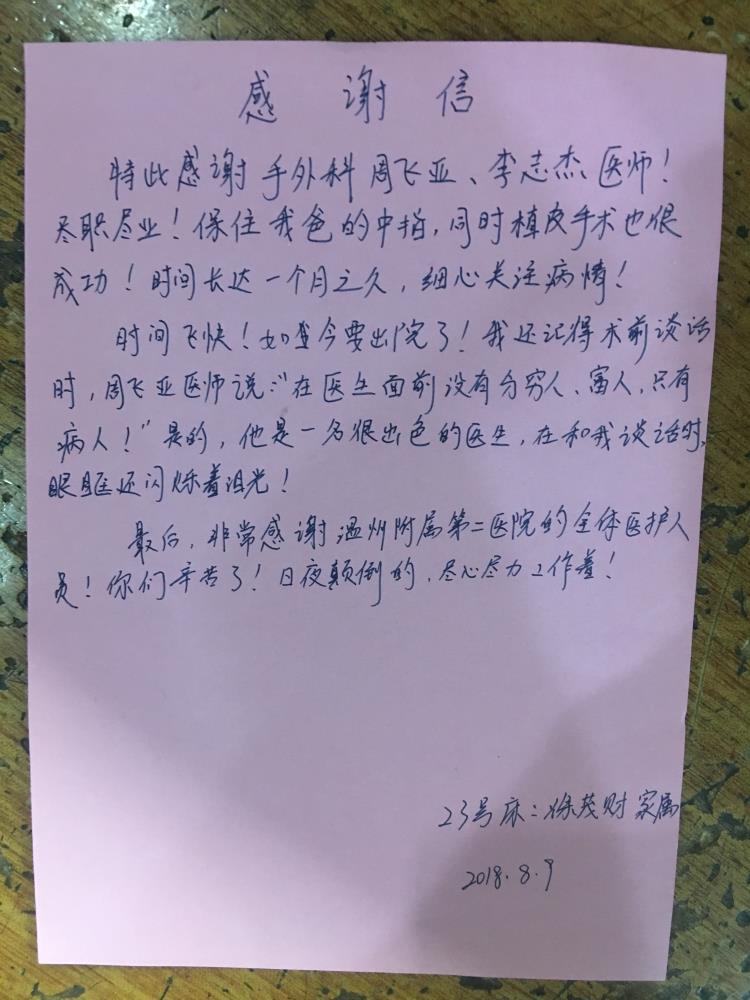 感谢信
特此感谢手外科周飞亚、李志杰医师！
尽职尽业！保住我爸的中指，同时植皮手术也很
成功！时间长达一个月之久，细心关注病情！
时间飞快！如今要出院了！我还记得术前谈话
时，周飞亚医师说："在医生面前没有分穷人、富人，只有
病人！"是的，他是一名很出色的医生，在和我谈话时，
眼眶还闪烁着泪光！
最后，非常感谢温州附属第二医院的全体医护人
员！你们辛苦了！日夜颠倒的，尽心尽力工作着！
23号床：徐茂财家属
2018.8.9